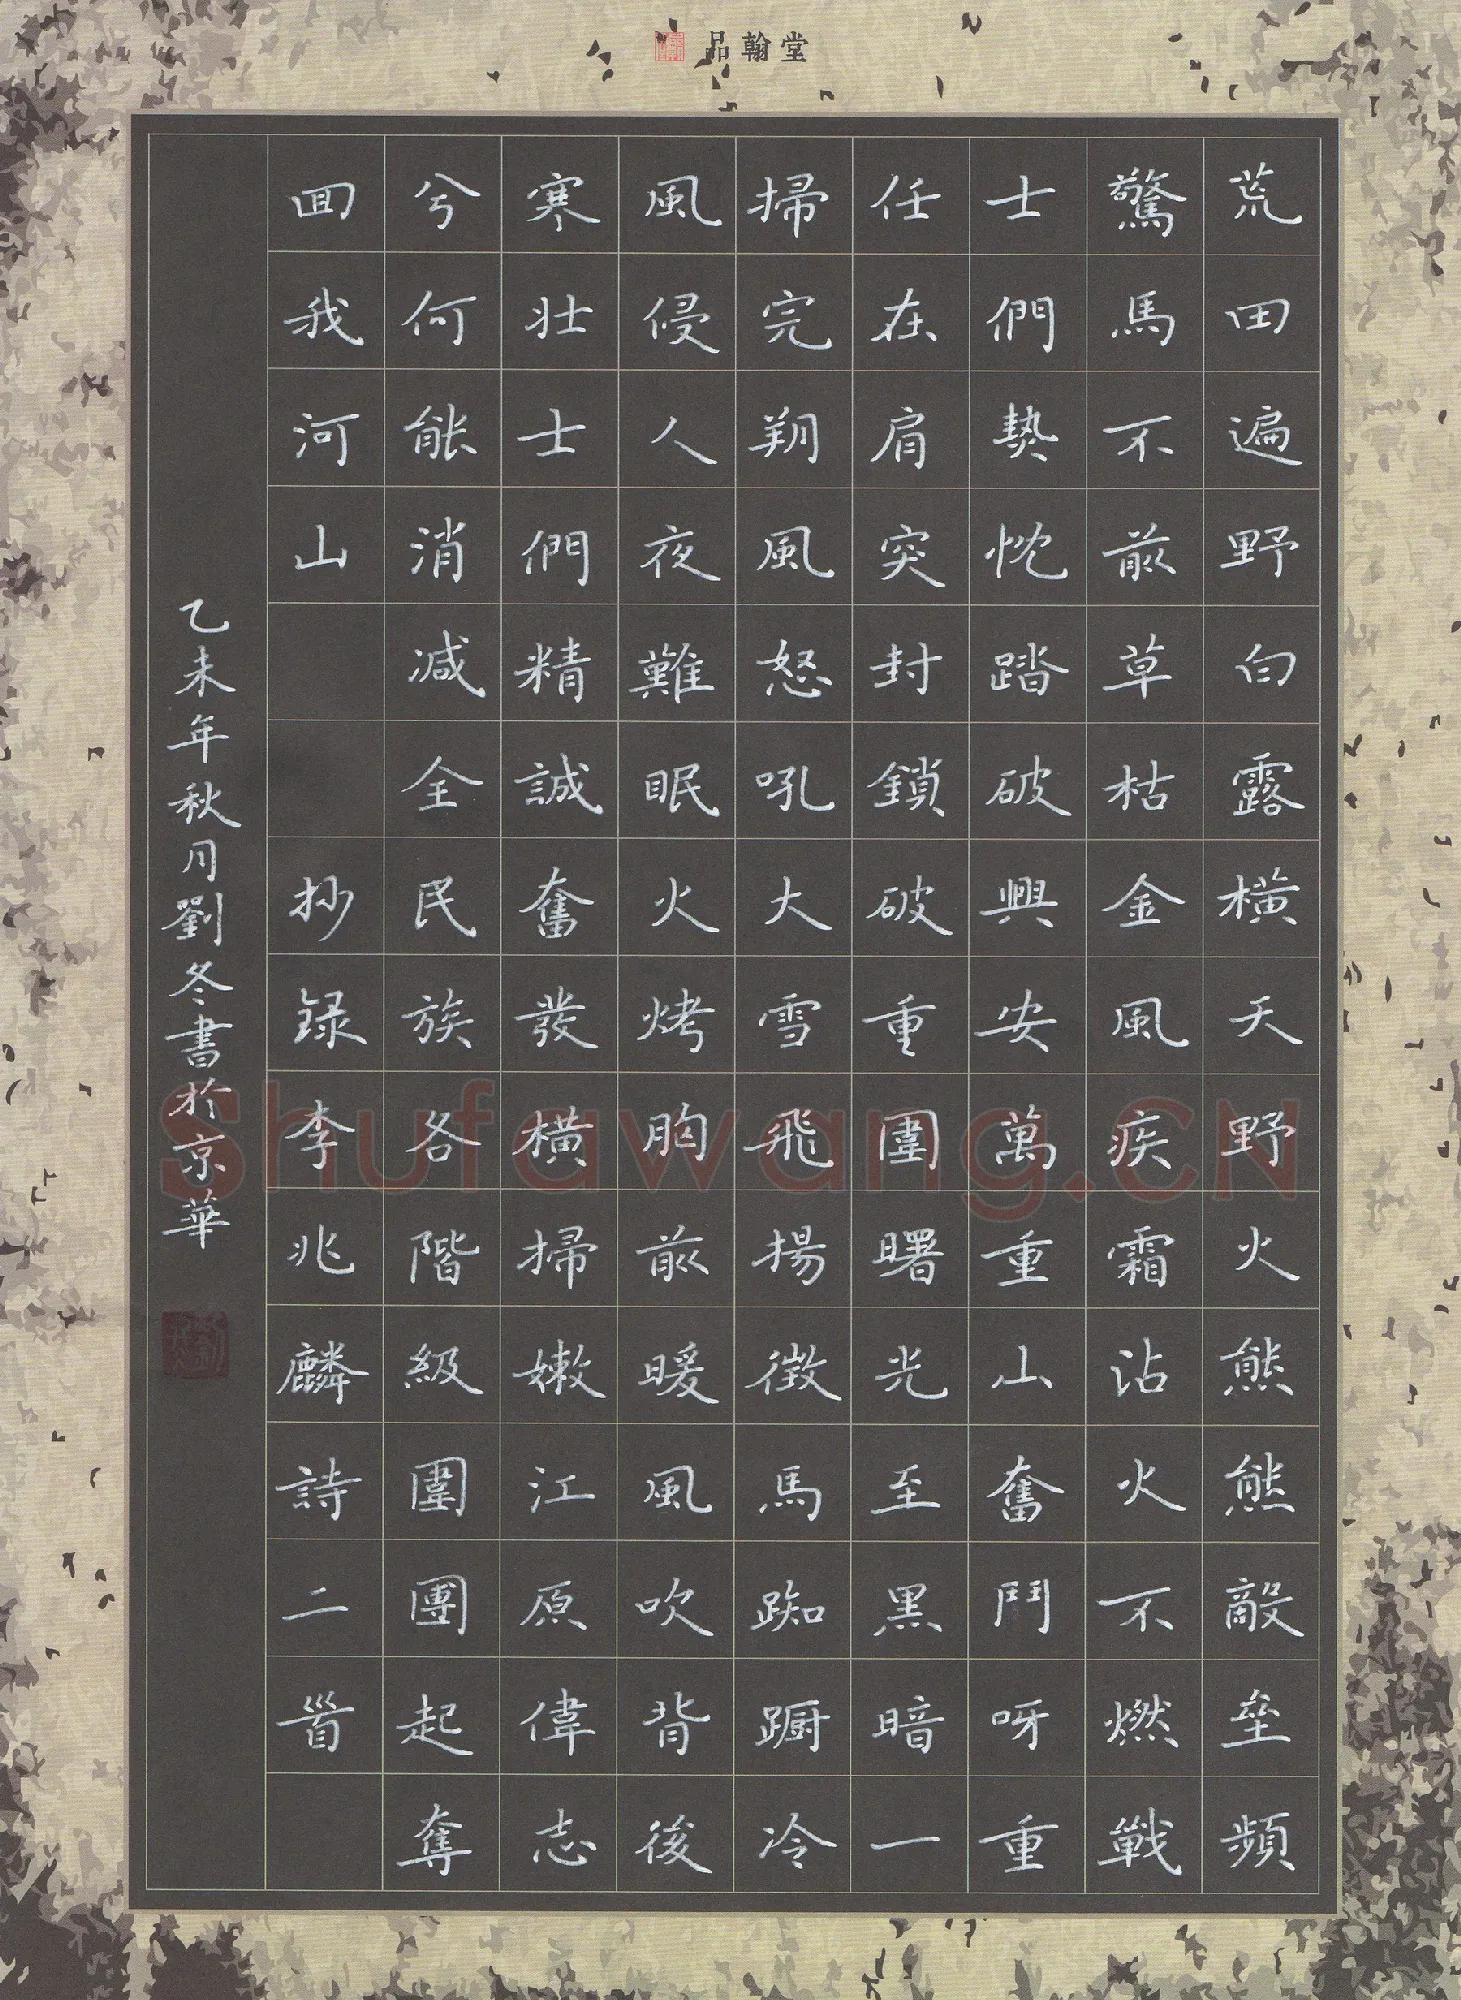 品翰堂
荒田遍野白露橫天野火熊熊敵壘頻
驚馬不前草枯金風疾霜沾火不燃戰
士們熱忱踏破興安萬重山奮鬥呀重
任在肩突封鎖破重圍曙光至黑暗一
掃完朔風怒吼大雪飛揚徵馬踟躕冷
風侵人夜難眠火烤胸前暖風吹背後
寒壯士們精誠奮發橫掃嫩江原偉志
兮何能消減全民族各階級團團起奪
回我河山
抄録李兆麟詩二首
乙未年秋月劉冬書於京華
Shufawang.CN